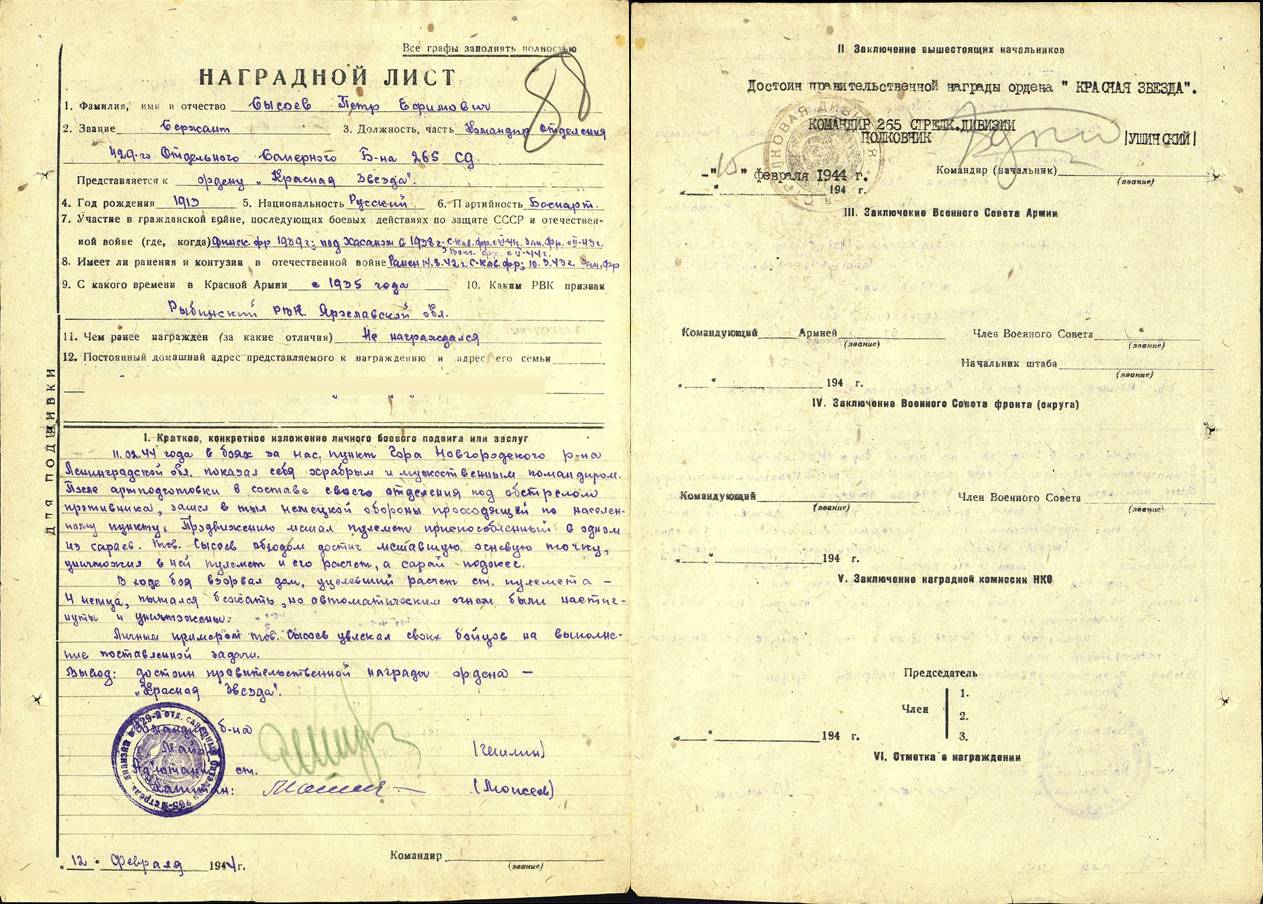 Все графы заполнять полностью
88
НАГРАДНОЙ ЛИСТ
1. Фамилия, имя и отчество Сысоев Петр Ефимович
2. Звание Сержант 3. Должность, часть Командир отделения
429-го Отдельного Саперного Б-на 265 СД
Представляется к ордену „Красная Звезда".
4. Год рождения 1913 5. Национальность Русский 6. Партийность Беспарт.
7. Участие в гражданской войне, последующих боевых действиях по защите СССР и отечествен-
ной войне (где, когда) Финск. фр 1939г; под Хасаном в 1938г.
8. Имеет ли ранения и контузии в отечественной войне Ранен 14.8.42г. С-Кав. фр; 10.3.43г.
9. С какого времени в Красной Армии с 1935 года 10. Каким РВК призван
Рыбинский РВК Ярославской обл.
11. Чем ранее награжден (за какие отличия) Не награждался
12. Постоянный домашний адрес представляемого к награждению и адрес его семьи
ДЛЯ ПОДШИВКИ
I. Краткое, конкретное изложение личного боевого подвига или заслуг
11.02.44 года в боях за нас. пункт Гора Новгородского р-на
Ленинградской обл. показал себя храбрым и мужественным командиром.
После артподготовки в составе своего отделения под обстрелом
противника, зашел в тыл немецкой обороны проходящей по населен-
ному пункту. Продвижению мешал пулемет приспособленный в одном
из сараев. Тов. Сысоев обходом достиг мешавшую огневую точку,
уничтожил в ней пулемет и его расчет, а сарай поджег.
В ходе боя взорвал дом, уцелевший расчет ст. пулемета –
4 немца, пытался бежать, но автоматическим огнем были настиг-
нуты и уничтожены.
Личным примером тов. Сысоев увлекал своих бойцов на выполне-
ние поставленной задачи.
Вывод: достоин правительственной награды ордена –
„Красная Звезда".
б-на
(Гмилин)
ст.
(Моисеев)
12 Февраля 1944 г.
Командир
(звание)
II Заключение вышестоящих начальников
Достоин правительственной награды ордена " КРАСНАЯ ЗВЕЗДА".
КОМАНДИР 265 СТРЕЛК.ДИВИЗИИ
ПОЛКОВНИК |УШИНСКИЙ|
-"15" февраля 1944 г. Командир (начальник)
(звание)
" " 194 г.
III. Заключение Военного Совета Армии
Командующий Армией Член Военного Совета
(звание) (звание)
Начальник штаба
(звание)
" " 194 г.
IV. Заключение Военного Совета фронта (округа)
Командующий Член Военного Совета
(звание) (звание)
" " 194 г.
V. Заключение наградной комиссии НКО
Председатель
Член
1.
2.
3.
" " 194 г.
VI. Отметка о награждении